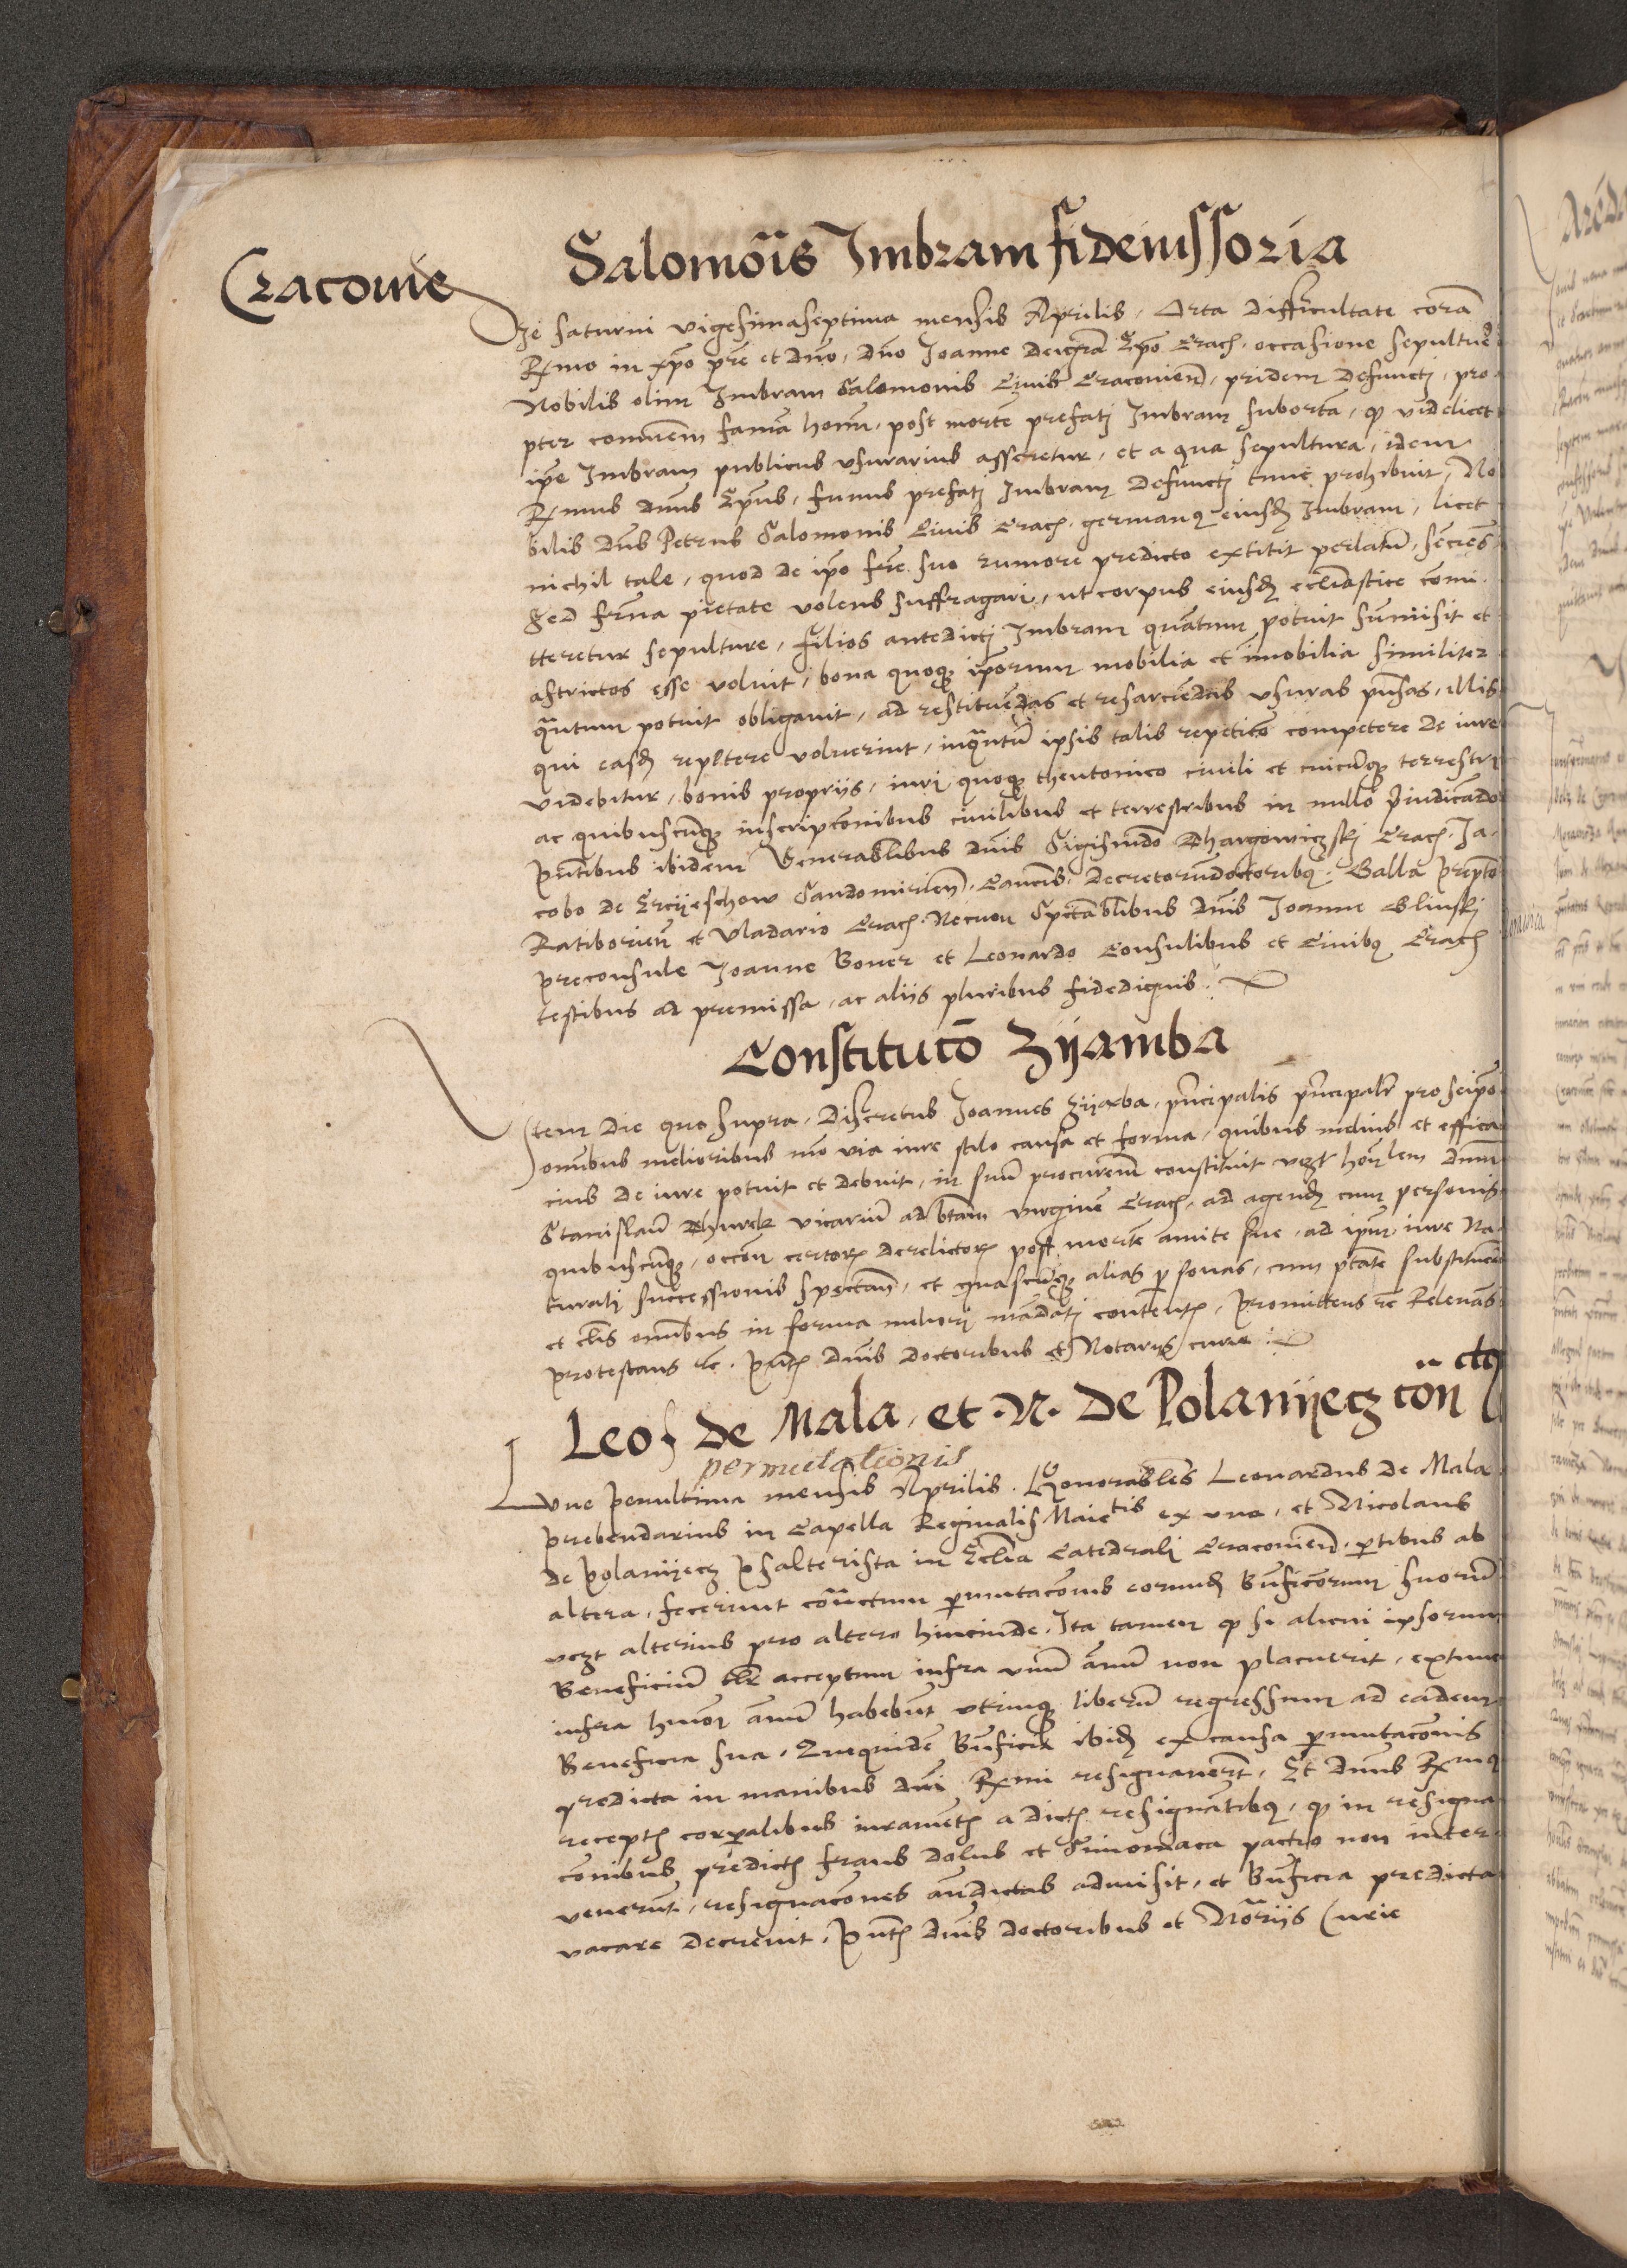 Salomōis Imbram fideiussoria
Cracovie
Die saturni vigesimaseptima mensis Aprilis, Orta difficultate corā
Rmo in xpo pre et dno, dno Joanne dei gra Epo Crac, occasione sepulture
Nobilis olim Imbram Salomonis Civis Cracovien, pridem defuncti, pro
pter comunem famā homi, post mortē prefati Imbram subortā, q videlicet
ipse Imbram publicus usurarius assereretur, et a qua sepultura, idem
Rmus dnus Epus, funus prefati Imbram defuncti tunc prohibuit, No
bilis dns Petrus Salomonis Civis Crac, germanq eiusd Imbram, licet
nichil tale, quod de ipo fre suo rumore predicto extitit perlatū,
Sed frna pietate volens suffragari, ut corpus eiusd eccliastice comi
tteretur sepulture, filios antedicti Imbram quātum potuit sumisit et
astrictos esse voluit, bona quoq iporum mobilia et imobilia similiter
quātum potuit obligavit, ad restituēdas et resarciēdas usuras pnsas, illis
qui easd repetere voluerint, inquātū ipsis talis repetico competere de iure
videbitur, bonis propriis, iuri quoq theutonico civili et cuicūq terrestri
ac quibuscūq inscripconibus civilibus et terrestribus in nullo piudicādo
Pntibus ibidem Venerablibus dnis Sigismūdo Thargowiczski Crac, Ja
cobo de Erciieschow Sandomirien, Canocis, Decretorū doctoribq, Galla prepto
Ratiborien et Vladario Crac. Necnon Spectablibus dnis Joanne Glinski
preconsule Joanne Boner et Leonardo Consulibus et Civibq Crac
testibus ad premissa, ac aliis pluribus fidedignis.
Constitutō Ziiamba
Item Die quo supra, Discretus Joannes Ziiaba, principalis principalr pro seipo
omibus melioribus mo via iure stilo causa et forma, quibus melius et effica
cius de iure potuit et debuit, in suū procurem constituit vezt honlem dnum
Stanislaū Thurek vicariū ad btam virginē Crac, ad agend cum personis
quibuscūq, occone certor derelictor post mortē amite sue, ad ipm iure na
turali successionis spectan, et quascūq alias psonas, cum ptate substituen
et clis omibus in forma meliori mādati content, Promittens rc Relevās
protestans rc. Pnt dnis doctoribus et Notariis curie
Leo de Mala, et .N. de Polaniiecz con ctq
permutationis
Lune penultima mensis Aprilis. Honorables Leonardus de Mala
prebendarius in Capella Reginalis Maietis ex una, et Nicolaus
de Polaniiecz psalterista in Eclia Catedrali Cracovien, ptibus ab
altera, fecerunt cōtractum pmutacionis eorund Bnficiorum suorū
vezt alterius pro altero hincinde. Ita tamen q si alicui ipsorum
Beneficiū tlr acceptum infra unū ānū non placuerit, extunc
infra hmoi ānū habebūt utrinq liberū regressum ad eadem
Beneficia sua, Quequidē Bnficia ibid ex causa pmutaconis
predicta in manibus dni Rmi resignaverūt, Et dnus Rmq
recept corpalibus iurament a dict resignātibq, q in resigna
conibus predict fraus dolus et Simoniaca pactio non inter
venerūt, resignacones āndictas admisit, et Bnficia predicta
vacare decrevit, Pnt dnis doctoribus et Noriis Curie